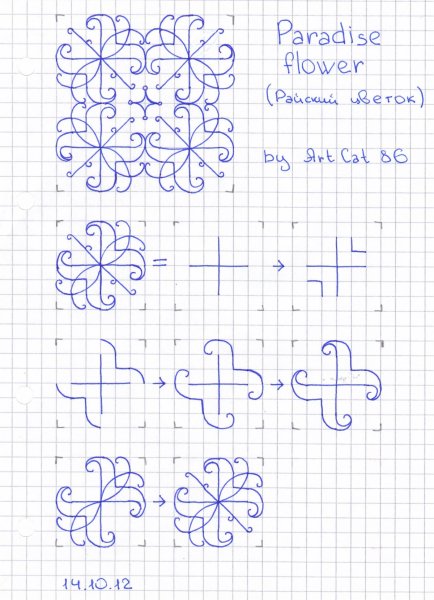 Paradise
flower
(Райский цветок)
by Art Cat 86
14.10.12